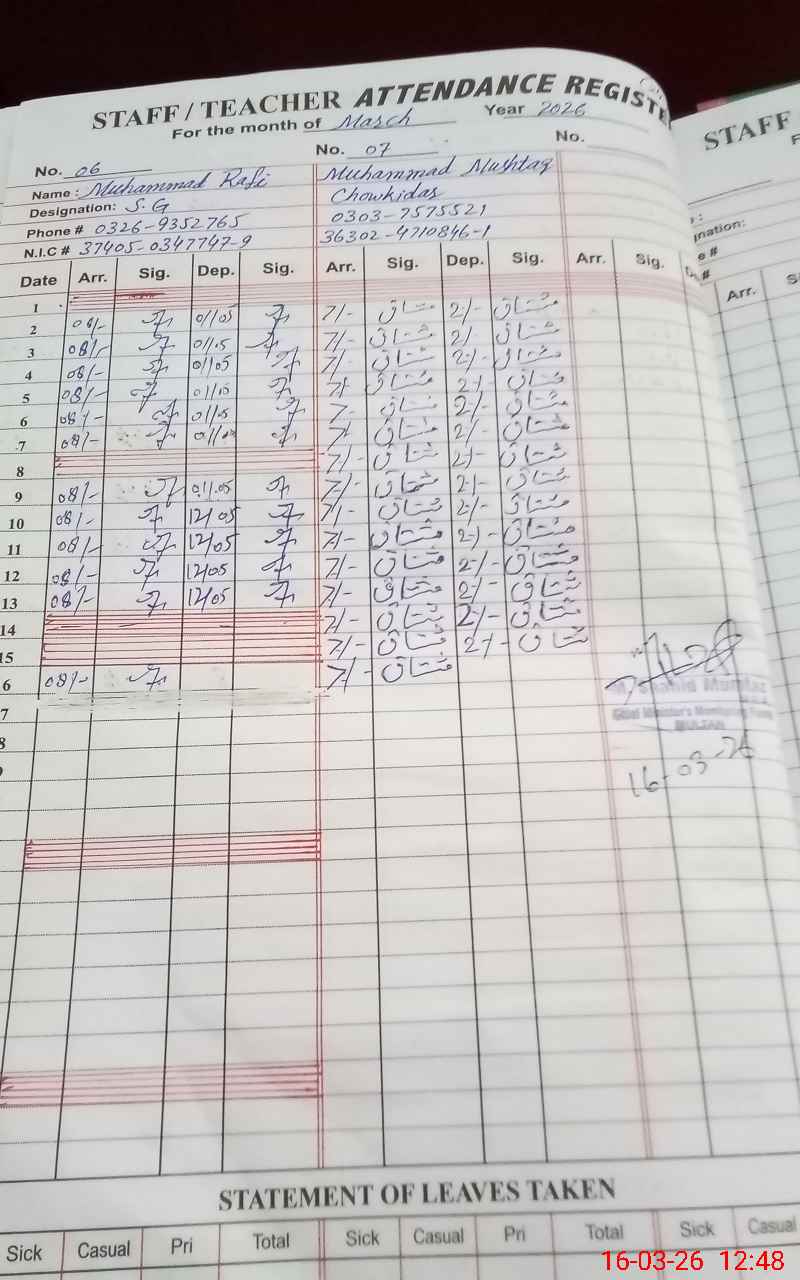 STAFF / TEACHER ATTENDANCE REGISTE
For the month of March Year 2026
No. 06 No. 07 No.
Name : Muhammad Rafi Muhammad Mushtaq
Designation: S.G Chowkidar
Phone # 0326-9352765 0303-7575521
N.I.C # 37405-0347747-9 36302-4710846-1
Date Arr. Sig. Dep. Sig. Arr. Sig. Dep. Sig. Arr. Sig.
1 7/- مشتاق 2/- مشتاق
2 08/- 01/05 7/- مشتاق 2/- مشتاق
3 08/- 01/05 7/- مشتاق 2/- مشتاق
4 08/- 01/05 7/- مشتاق 2/- مشتاق
5 08/- 7/- مشتاق 2/- مشتاق
6 08/- 01/05 7/- مشتاق 2/- مشتاق
7 08/- 7/- مشتاق 2/- مشتاق
8 7/- مشتاق 2/- مشتاق
9 08/- 01/05 7/- مشتاق 2/- مشتاق
10 08/- 12/05 7/- مشتاق 2/- مشتاق
11 08/- 12/05 7/- مشتاق 2/- مشتاق
12 08/- 12/05 7/- مشتاق 2/- مشتاق
13 08/- 12/05 7/- مشتاق 2/- مشتاق
14 7/- مشتاق 2/- مشتاق
15 7/- مشتاق 2/- مشتاق
6 08/- 7/- مشتاق
7
8
M. Shahid Mumtaz
Chief Minister's Monitoring Force
MULTAN
16-03-26
STATEMENT OF LEAVES TAKEN
Sick Casual Pri Total Sick Casual Pri Total Sick Casual
STAFF
gnation:
e #
Arr.
16-03-26 12:48